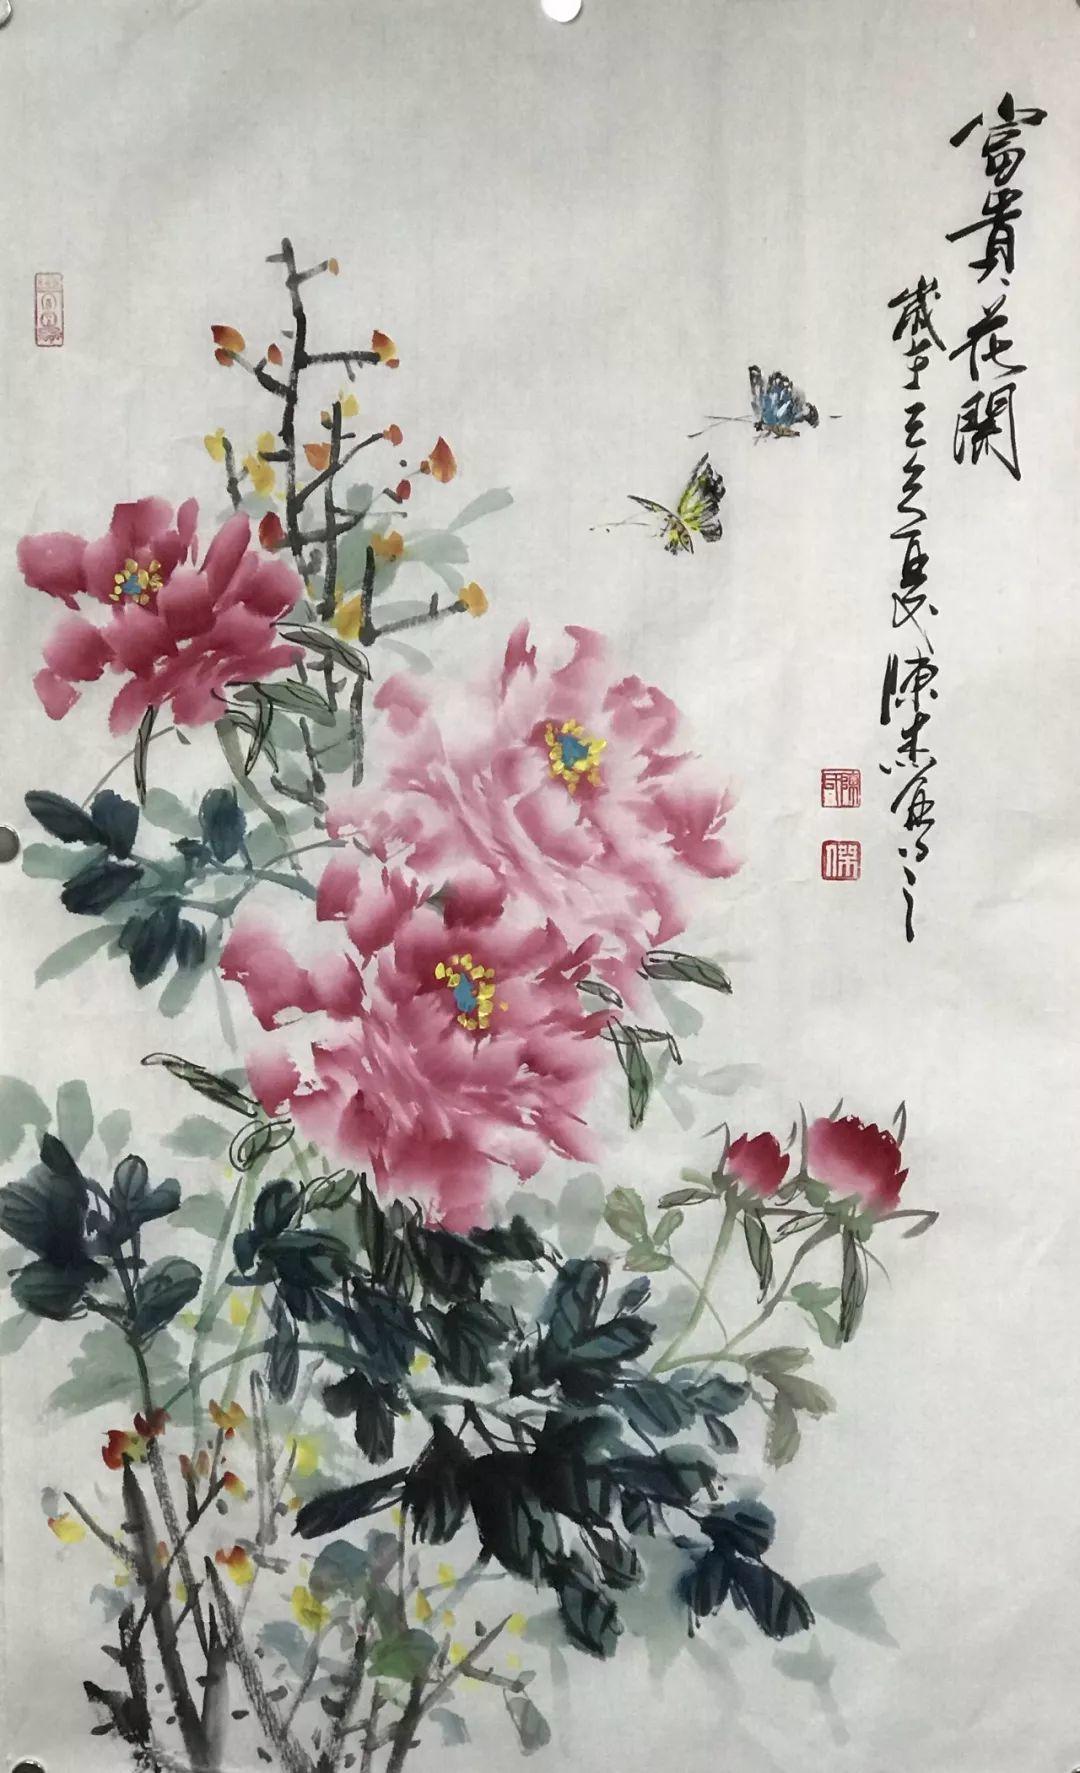 富貴花開
歲在己亥夏陳杰寫之
傑